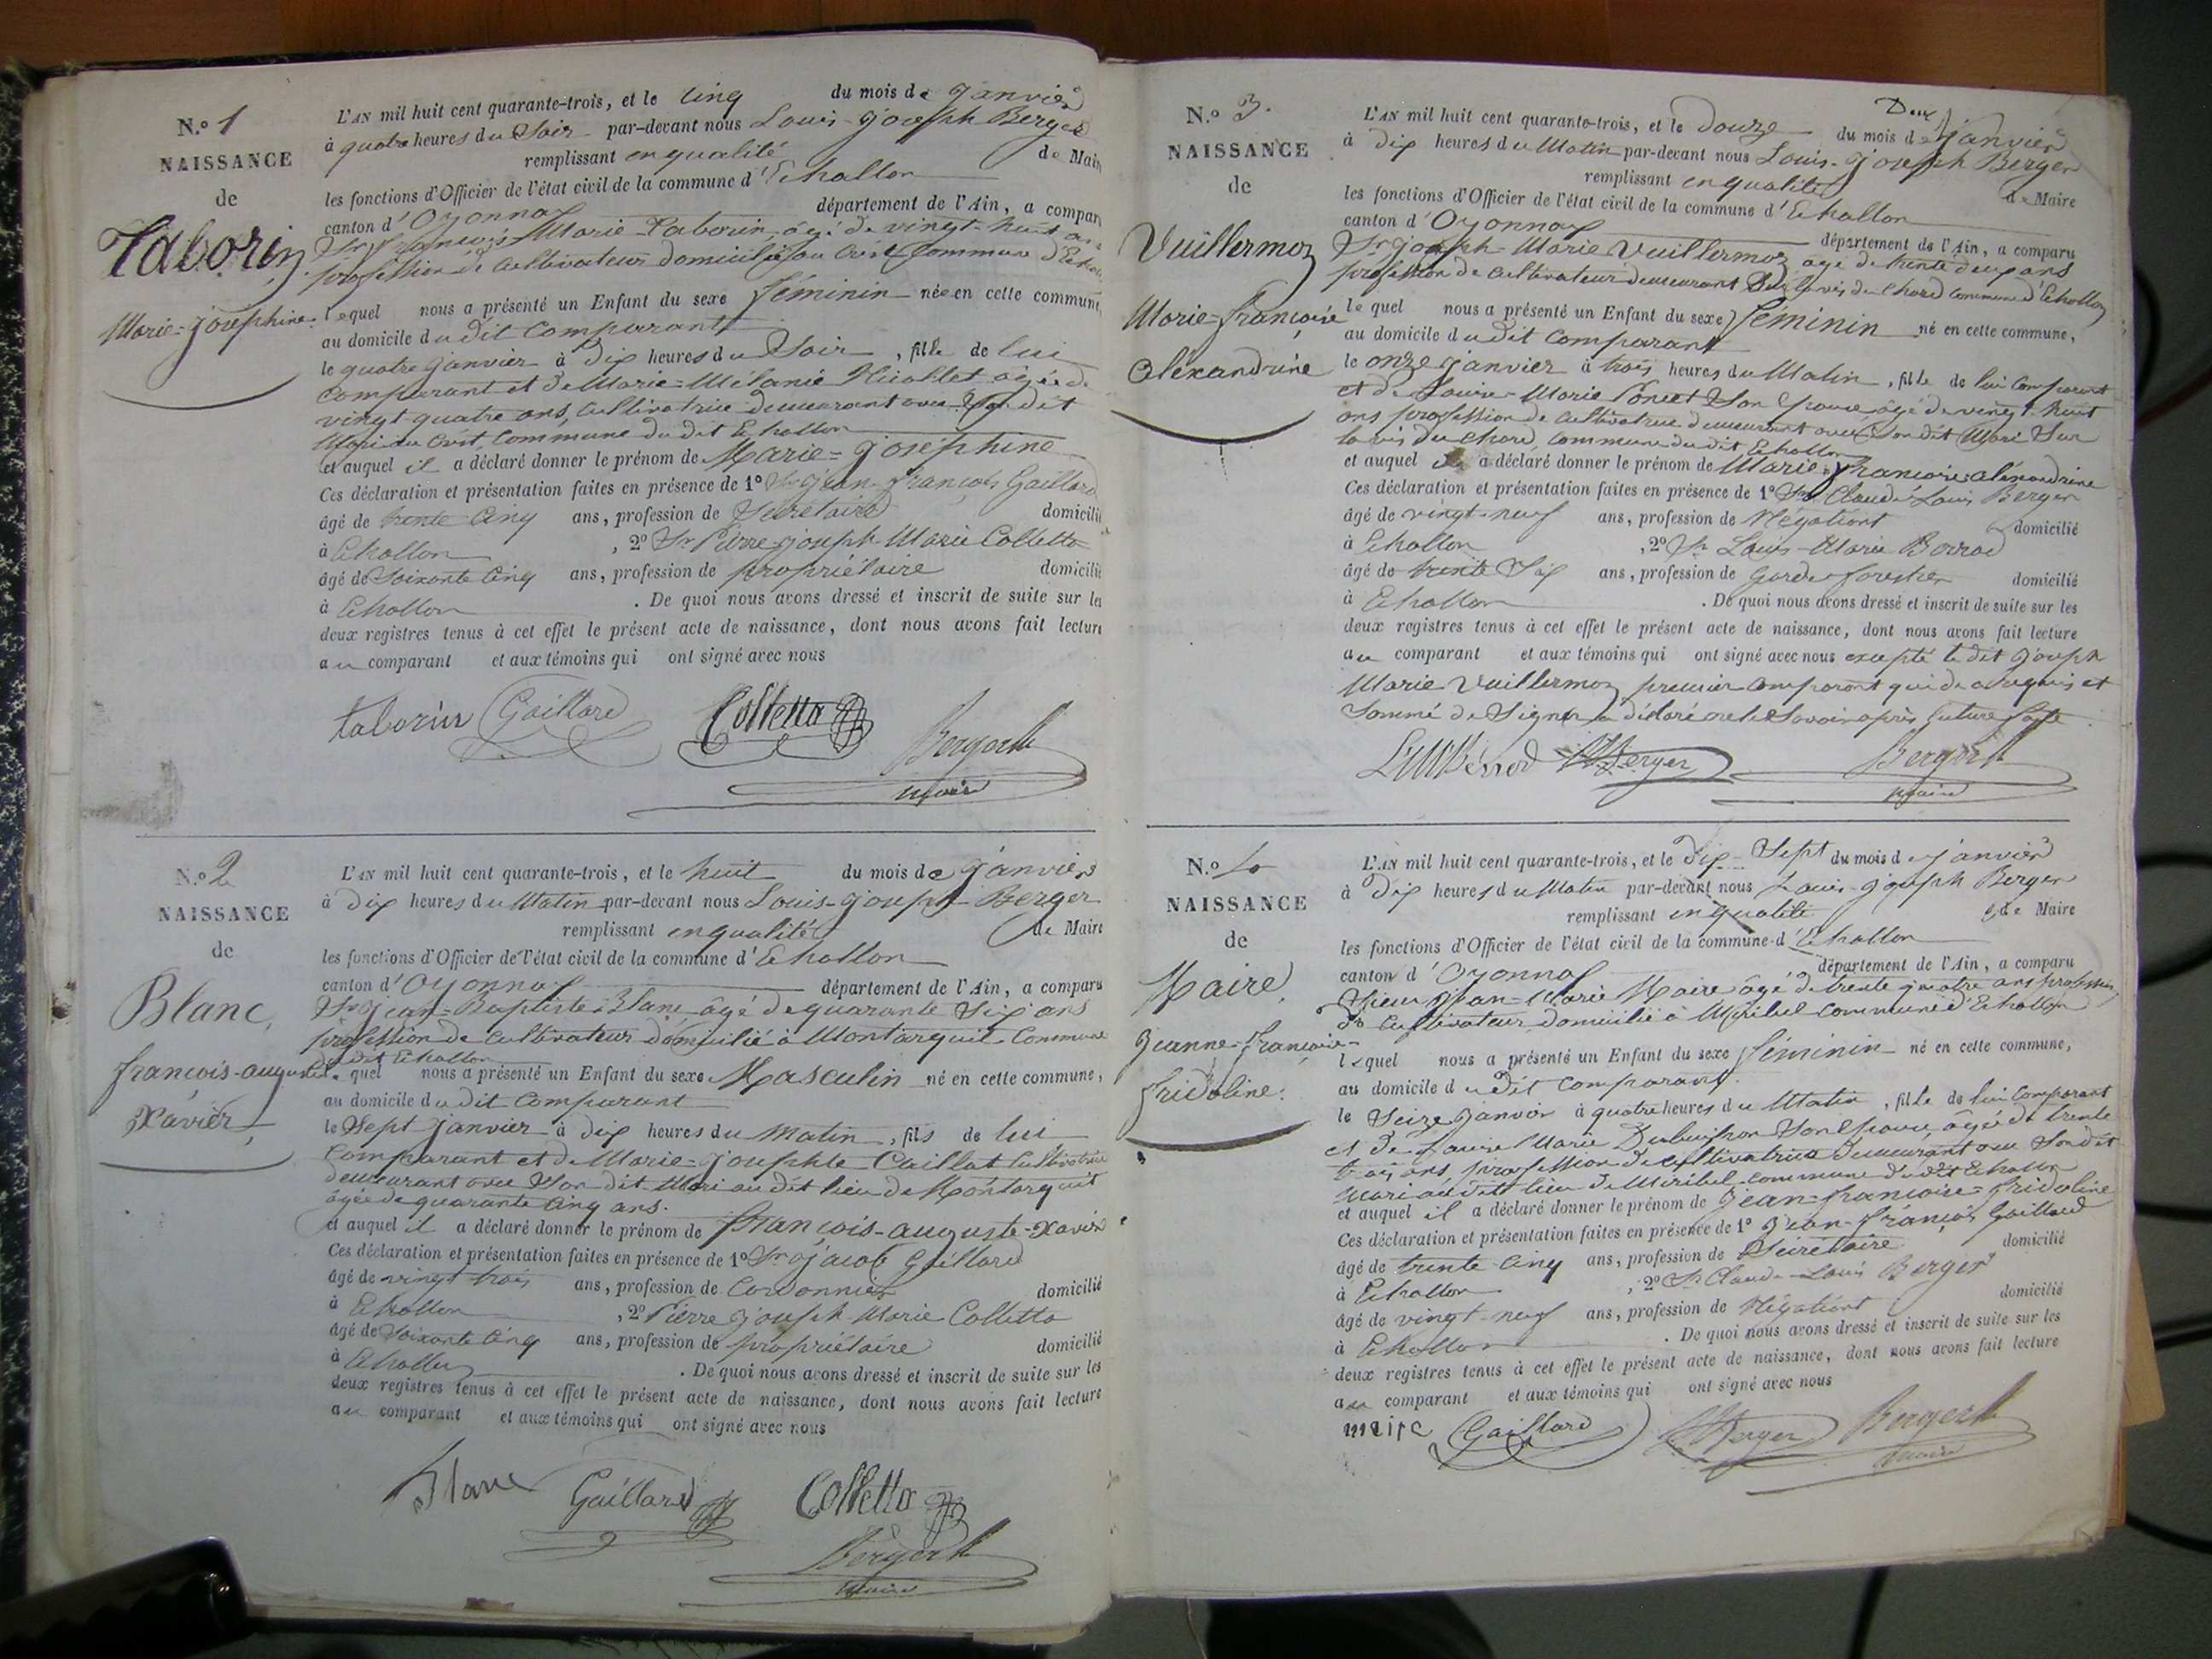 N.º 1
NAISSANCE
de
Taborin
Marie=joséphine.
L'AN mil huit cent quarante-trois, et le cinq du mois de janvier
à quatre heures du Soir par-devant nous Louis-joseph Berger
remplissant en qualité de Maire
les fonctions d'Officier de l'état civil de la commune d'Echallon
canton d'Oyonnax département de l'Ain, a comparu
Sr françois Marie Taborin âgé de vingt-huit ans
profession de cultivateur domicilié au Crêt Commune d'Echallon
lequel nous a présenté un Enfant du sexe féminin née en cette commune,
au domicile du dit Comparant
le quatre janvier à dix heures du Soir, fille de lui
Comparant et de Marie=Mélanie Nicollet âgée de
vingt quatre ans, cultivatrice demeurant avec son dit
Mari au Crêt Commune du dit Echallon
et auquel il a déclaré donner le prénom de Marie=joséphine
Ces déclaration et présentation faites en présence de 1º Sr jean-françois Gaillard
âgé de trente cinq ans, profession de Secrétaire domicilié
à Echallon, 2º Sr Pierre joseph Marie Colletta
âgé de Soixante Cinq ans, profession de propriétaire domicilié
à Echallon. De quoi nous avons dressé et inscrit de suite sur les
deux registres tenus à cet effet le présent acte de naissance, dont nous avons fait lecture
au comparant et aux témoins qui ont signé avec nous
taborin Gaillard Colletta Berger
maire
N.º 2
NAISSANCE
de
Blanc,
françois-auguste
Xavier
L'AN mil huit cent quarante-trois, et le huit du mois de janvier
à dix heures du Matin par-devant nous Louis-joseph Berger
remplissant en qualité de Maire
les fonctions d'Officier de l'état civil de la commune d'Echallon
canton d'Oyonnax département de l'Ain, a comparu
Sr jean-Baptiste Blanc âgé de quarante Six ans
profession de cultivateur domicilié à Montarquit Commune
du dit Echallon
lequel nous a présenté un Enfant du sexe Masculin né en cette commune,
au domicile du dit Comparant
le Sept janvier à dix heures du matin, fils de lui
Comparant et de Marie=josephte Caillat Cultivatrice
demeurant avec Son dit Mari au dit lieu de Montarquit
âgée de quarante Cinq ans.
et auquel il a déclaré donner le prénom de françois-auguste-Xavier
Ces déclaration et présentation faites en présence de 1º Sr jacob Gaillard
âgé de vingt trois ans, profession de Cordonnier domicilié
à Echallon, 2º Pierre joseph Marie Colletta
âgé de Soixante Cinq ans, profession de propriétaire domicilié
à Echallon. De quoi nous avons dressé et inscrit de suite sur les
deux registres tenus à cet effet le présent acte de naissance, dont nous avons fait lecture
au comparant et aux témoins qui ont signé avec nous
Blanc Gaillard Colletta
Berger
Maire
Deux
N.º 3.
NAISSANCE
de
Vuillermoz
Marie-françoise
alexandrine
L'AN mil huit cent quarante-trois, et le douze du mois de janvier
à dix heures du Matin par-devant nous Louis-joseph Berger
remplissant en qualité de Maire
les fonctions d'Officier de l'état civil de la commune d'Echallon
canton d'Oyonnax département de l'Ain, a comparu
Sr joseph-Marie Vuillermoz âgé de trente deux ans
profession de cultivateur demeurant Sur la vis du Chard commune d'Echallon
lequel nous a présenté un Enfant du sexe féminin né en cette commune,
au domicile du dit Comparant
le onze janvier à trois heures du Matin, fille de lui Comparant
et de Louise-Marie Poncet Son Epouse âgé de vingt-huit
ans profession de cultivatrice demeurant avec Son dit Mari Sur
la vis du Chard, commune du dit Echallon
et auquel il a déclaré donner le prénom de Marie-françoise-alexandrine
Ces déclaration et présentation faites en présence de 1º Sr Claude Louis Berger
âgé de vingt-neuf ans, profession de Négotiant domicilié
à Echallon, 2º Sr Louis-Marie Borrod
âgé de trente Six ans, profession de Garde forestier domicilié
à Echallon. De quoi nous avons dressé et inscrit de suite sur les
deux registres tenus à cet effet le présent acte de naissance, dont nous avons fait lecture
au comparant et aux témoins qui ont signé avec nous excepté le dit joseph
Marie Vuillermoz premier Comparant qui de ce requis et
Sommé de Signer a déclaré ne le Savoir après lecture faite
Berger Berger
maire
N.º 4
NAISSANCE
de
Maire,
jeanne-françoise-
fridoline.
L'AN mil huit cent quarante-trois, et le dix-Sept du mois de janvier
à dix heures du Matin par-devant nous Louis-joseph Berger
remplissant en qualité de Maire
les fonctions d'Officier de l'état civil de la commune d'Echallon
canton d'Oyonnax département de l'Ain, a comparu
Sieur jean-Marie Maire âgé de trente quatre ans profession
de Cultivateur domicilié à Miribel commune d'Echallon
lequel nous a présenté un Enfant du sexe féminin né en cette commune,
au domicile du dit Comparant.
le Seize janvier à quatre heures du Matin, fille de lui Comparant
et de Louise Marie Dubuisson Son Epouse, âgée de trente
trois ans profession de cultivatrice demeurant avec Son dit
Mari au dit lieu de Miribel commune du dit Echallon
et auquel il a déclaré donner le prénom de jean-françoise-fridoline
Ces déclaration et présentation faites en présence de 1º jean-françois Gaillard
âgé de trente Cinq ans, profession de Secrétaire domicilié
à Echallon, 2º Sr Claude-Louis Berger
âgé de vingt-neuf ans, profession de Négotiant domicilié
à Echallon. De quoi nous avons dressé et inscrit de suite sur les
deux registres tenus à cet effet le présent acte de naissance, dont nous avons fait lecture
au comparant et aux témoins qui ont signé avec nous
maire Gaillard Berger Berger
maire